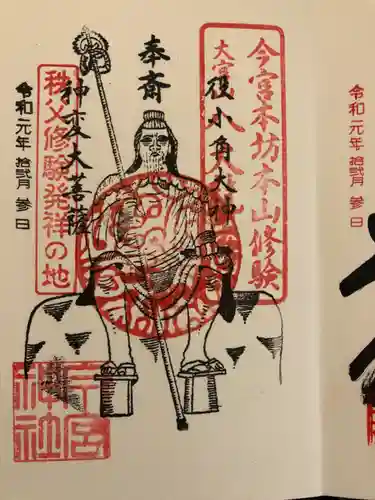 今宮本坊本山修験
奉斎
役小角大神
神変大菩薩
秩父修験発祥の地
令和元年 拾弐月 参日
今宮
神社
令和元年 拾弐月 参日